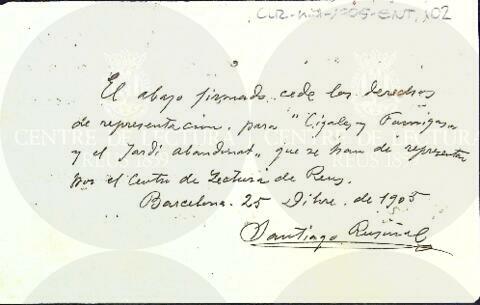 CLR-
El abajo firmado, cede los derechos
de representacion, para "Cigales y Formigas
y el Jardí abandonat" que se han de representar
por el Centro de Lectura de Reus.
Barcelona 25 Dibre. de 1905
Santiago Rusiñol
CENTRE DE LECTURA
REUS 1859